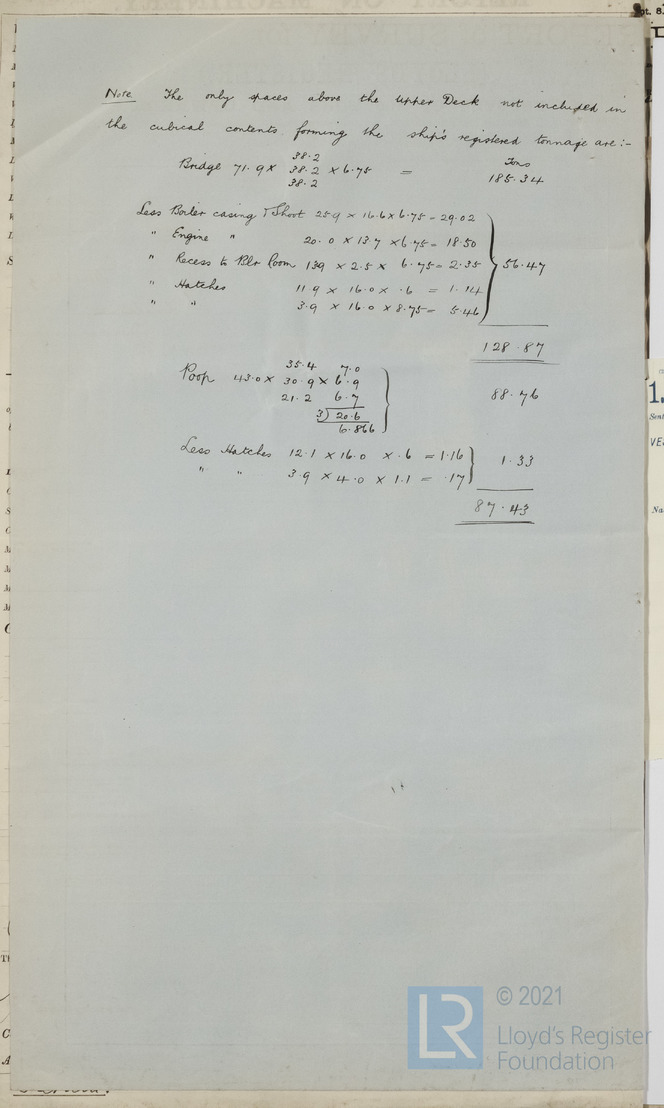 Note The only spaces above the Upper Deck not included in
the cubical contents forming the ship's registered tonnage are:-
Tons
38.2
Bridge 71.9 x 38.2 x 6.75 = 185.34
38.2
Less Boiler casing & Shoot 25.9 x 16.6 x 6.75 = 29.02
" Engine " 20.0 x 13.7 x 6.75 = 18.50
" Recess to Blr Room 13.9 x 2.5 x 6.75 = 2.35 56.47
" Hatches 11.9 x 16.0 x .6 = 1.14
" " 3.9 x 16.0 x 8.75 = 5.46
128.87
35.4 7.0
Poop 43.0 x 30.9 x 6.9 88.76
21.2 6.7
3) 20.6
6.866
Less Hatches 12.1 x 16.0 x .6 = 1.16 1.33
" " 3.9 x 4.0 x 1.1 = .17
87.43
© 2021
LR
Lloyd's Register
Foundation